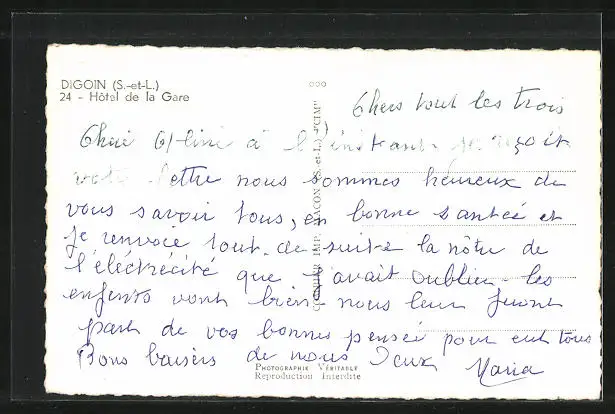 DIGOIN (S.-et-L.)
24 - Hôtel de la Gare
Chers tout les trois
à l'instant je reçoit
votre lettre nous sommes heureux de
vous savoir tous, en bonne santeé et
je renvoie tout de suite la nôtre de
l'éléctrécité que j'avait oublier les
enfents vont bien nous leur feront
part de vos bonnes penseé pour eut tous
Bons baisers de nous Deux Maria
COMBIER IMP. MACON (S.-et-L.) "CIM"
PHOTOGRAPHIE VÉRITABLE
Reproduction Interdite